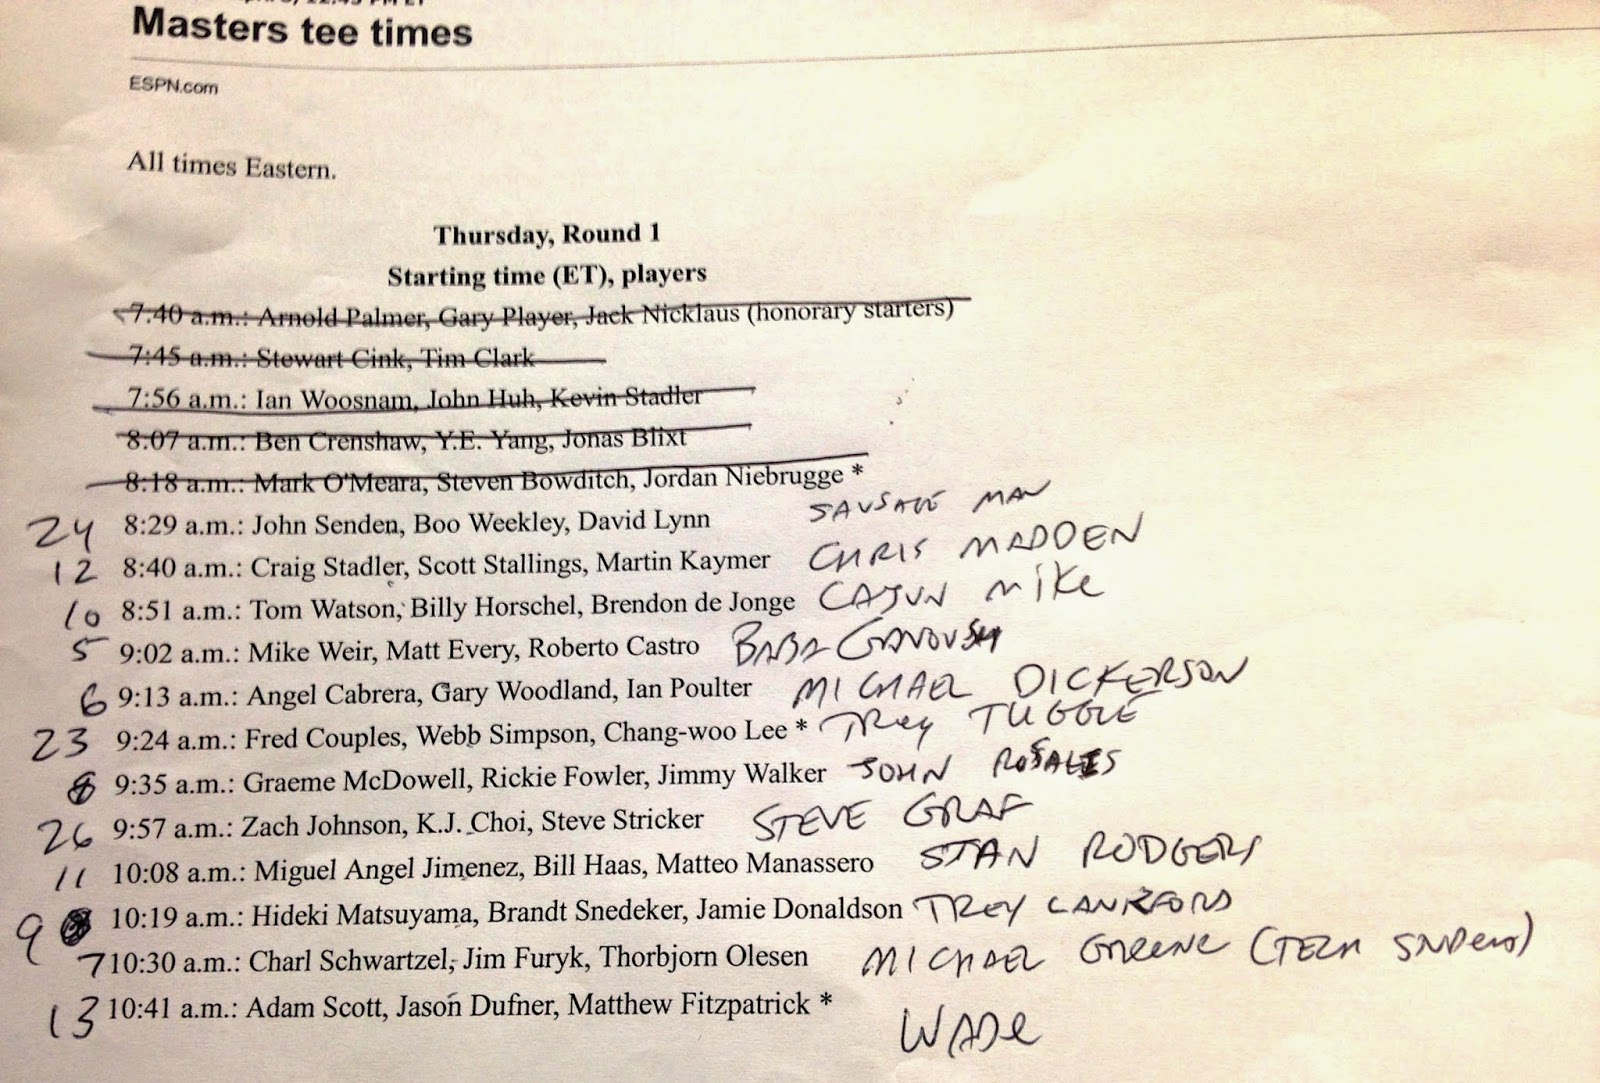 Masters tee times
ESPN.com
All times Eastern.
Thursday, Round 1
Starting time (ET), players
7:40 a.m.: Arnold Palmer, Gary Player, Jack Nicklaus (honorary starters)
7:45 a.m.: Stewart Cink, Tim Clark
7:56 a.m.: Ian Woosnam, John Huh, Kevin Stadler
8:07 a.m.: Ben Crenshaw, Y.E. Yang, Jonas Blixt
8:18 a.m.: Mark O'Meara, Steven Bowditch, Jordan Niebrugge *
24 8:29 a.m.: John Senden, Boo Weekley, David Lynn SAUSAGE MAN
12 8:40 a.m.: Craig Stadler, Scott Stallings, Martin Kaymer CHRIS MADDEN
10 8:51 a.m.: Tom Watson, Billy Horschel, Brendon de Jonge CAJUN MIKE
5 9:02 a.m.: Mike Weir, Matt Every, Roberto Castro BABA GANOUSH
6 9:13 a.m.: Angel Cabrera, Gary Woodland, Ian Poulter MICHAEL DICKERSON
23 9:24 a.m.: Fred Couples, Webb Simpson, Chang-woo Lee * TREY TUGGLE
8 9:35 a.m.: Graeme McDowell, Rickie Fowler, Jimmy Walker JOHN ROSALES
26 9:57 a.m.: Zach Johnson, K.J. Choi, Steve Stricker STEVE GRAF
11 10:08 a.m.: Miguel Angel Jimenez, Bill Haas, Matteo Manassero STAN RODGERS
9 10:19 a.m.: Hideki Matsuyama, Brandt Snedeker, Jamie Donaldson TREY LANKFORD
7 10:30 a.m.: Charl Schwartzel, Jim Furyk, Thorbjorn Olesen MICHAEL GREENE (TECH
13 10:41 a.m.: Adam Scott, Jason Dufner, Matthew Fitzpatrick * WADE